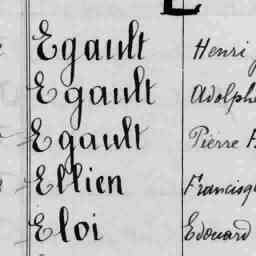 E
Egault Henri
Egault Adolphe
Egault Pierre
Ellien
Eloi Edouard